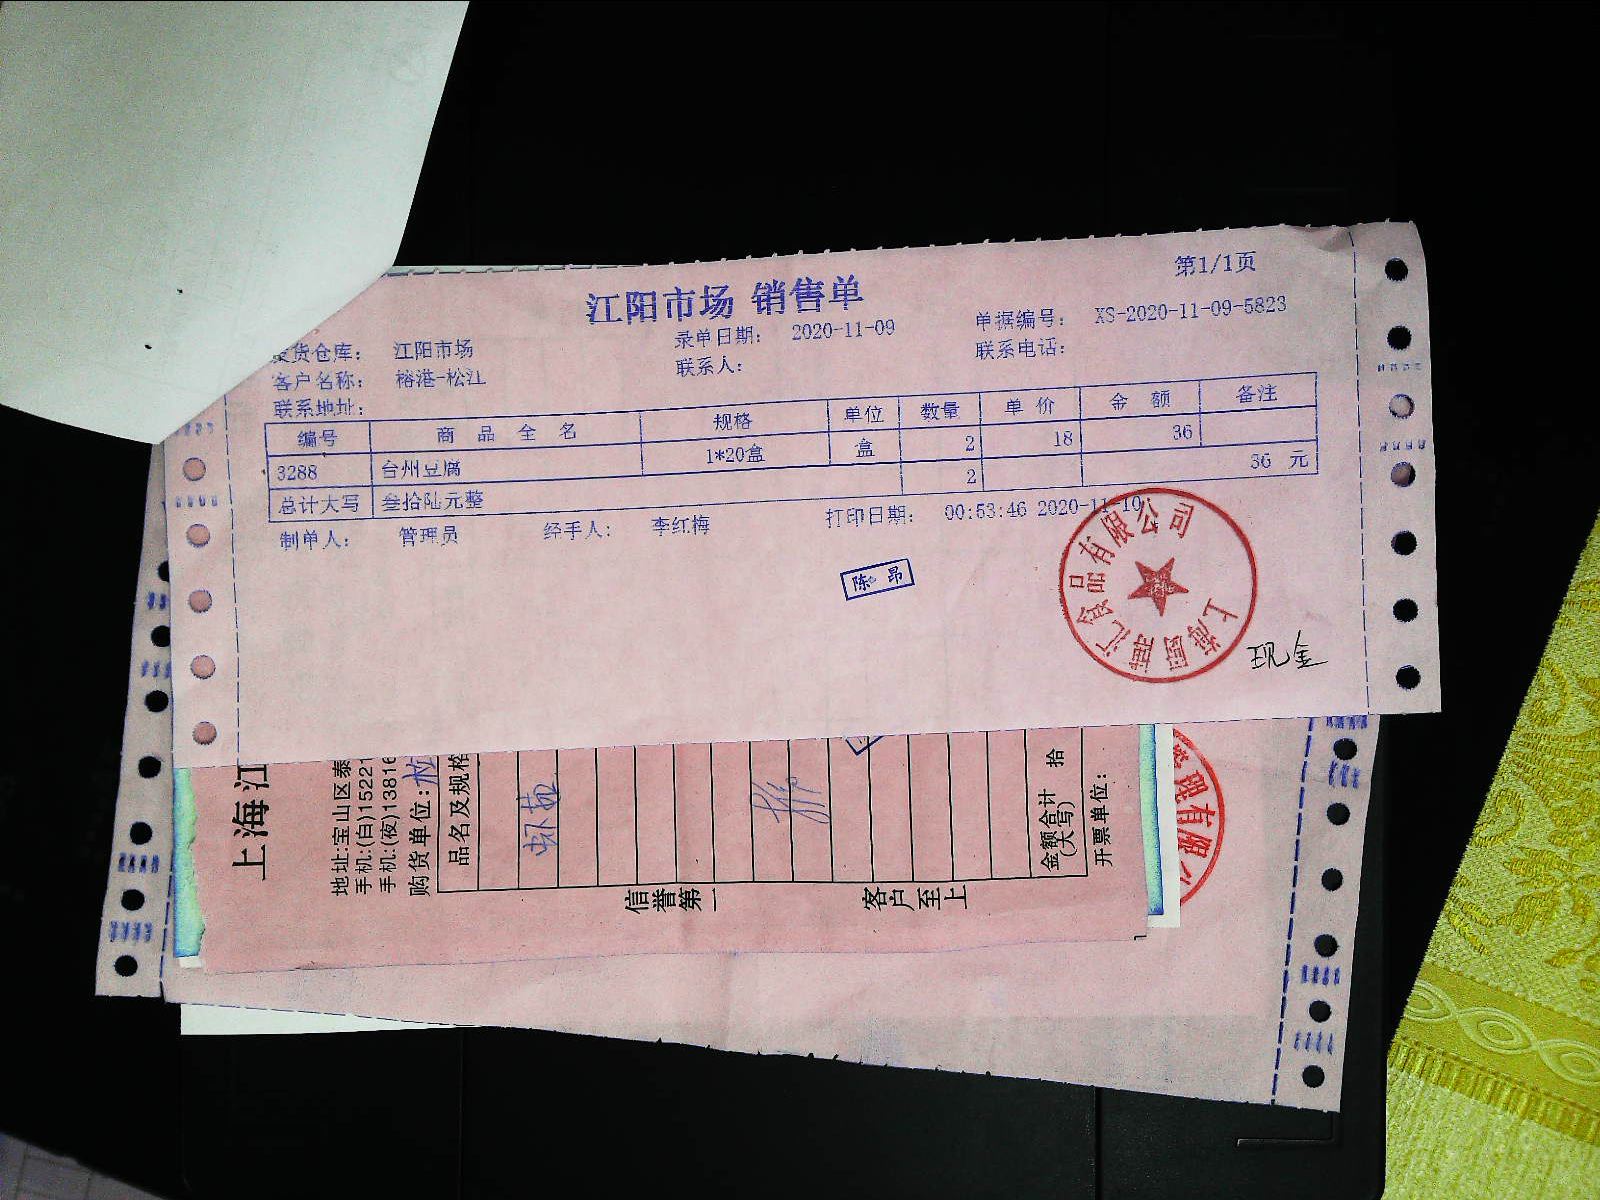 江阳市场 销售单
第1/1页
发货仓库: 江阳市场 录单日期: 2020-11-09 单据编号: XS-2020-11-09-5823
客户名称: 榕港-松江 联系人: 联系电话:
联系地址:
编号 商品全名 规格 单位 数量 单价 金额 备注
3288 台州豆腐 1*20盒 盒 2 18 36
总计大写 叁拾陆元整 2 36 元
制单人: 管理员 经手人: 李红梅 打印日期: 00:53:46 2020-11-10
陈 昂
食品有限公司
现金
上海江
地址:宝山区泰
手机:(白)15221
手机:(夜)13816
购货单位:松
品名及规格
虾苗
金额合计(大写) 拾
开票单位:
信誉第一 客户至上
有限